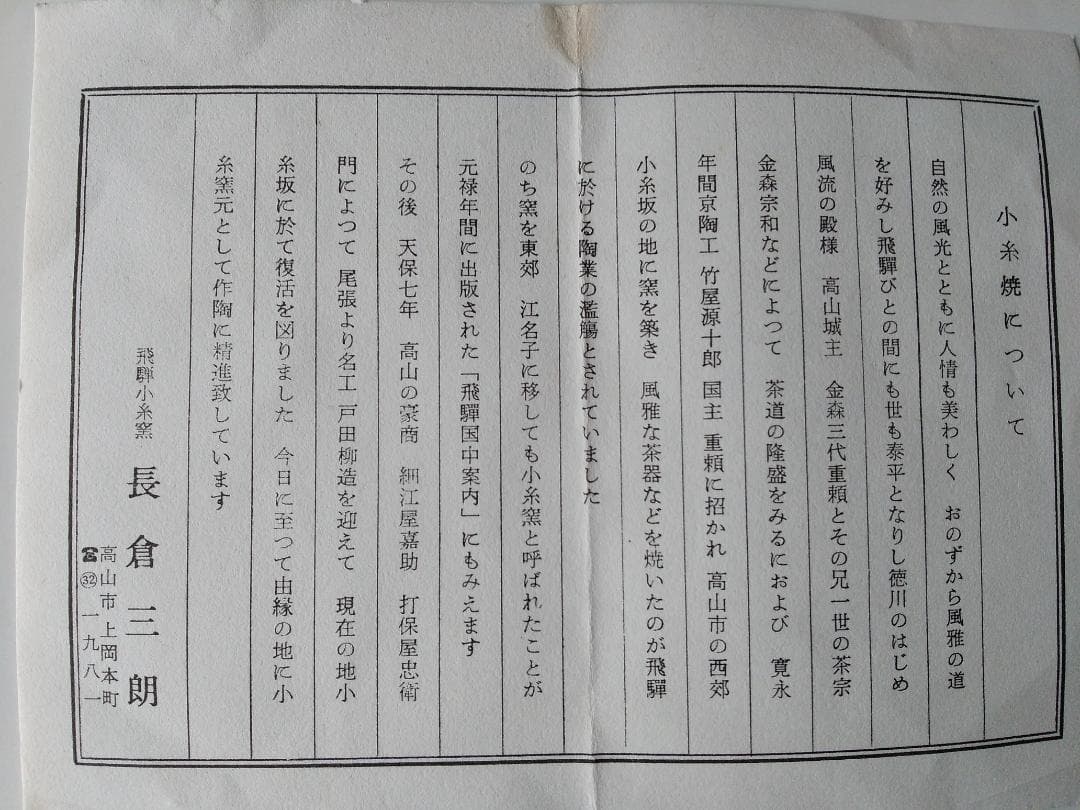 小糸焼について
自然の風光とともに人情も美わしく　おのずから風雅の道
を好みし飛驒びとの間にも世も泰平となりし徳川のはじめ
風流の殿様　高山城主　金森三代重頼とその兄一世の茶宗
金森宗和などによつて　茶道の隆盛をみるにおよび　寛永
年間京陶工　竹屋源十郎　国主　重頼に招かれ　高山市の西郊
小糸坂の地に窯を築き　風雅な茶器などを焼いたのが飛驒
に於ける陶業の濫觴とされていました
のち窯を東郊　江名子に移しても小糸窯と呼ばれたことが
元禄年間に出版された「飛驒国中案内」にもみえます
その後　天保七年　高山の豪商　細江屋嘉助　打保屋忠衛
門によつて　尾張より名工戸田柳造を迎えて　現在の地小
糸坂に於て復活を図りました　今日に至つて由縁の地に小
糸窯元として作陶に精進致しています
飛驒小糸窯　長倉三朗
高山市上岡本町
☎㉜一九八一